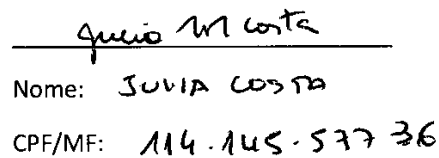 M Costa
Nome: JULIA COSTA
CPF/MF: 114.145.577 36